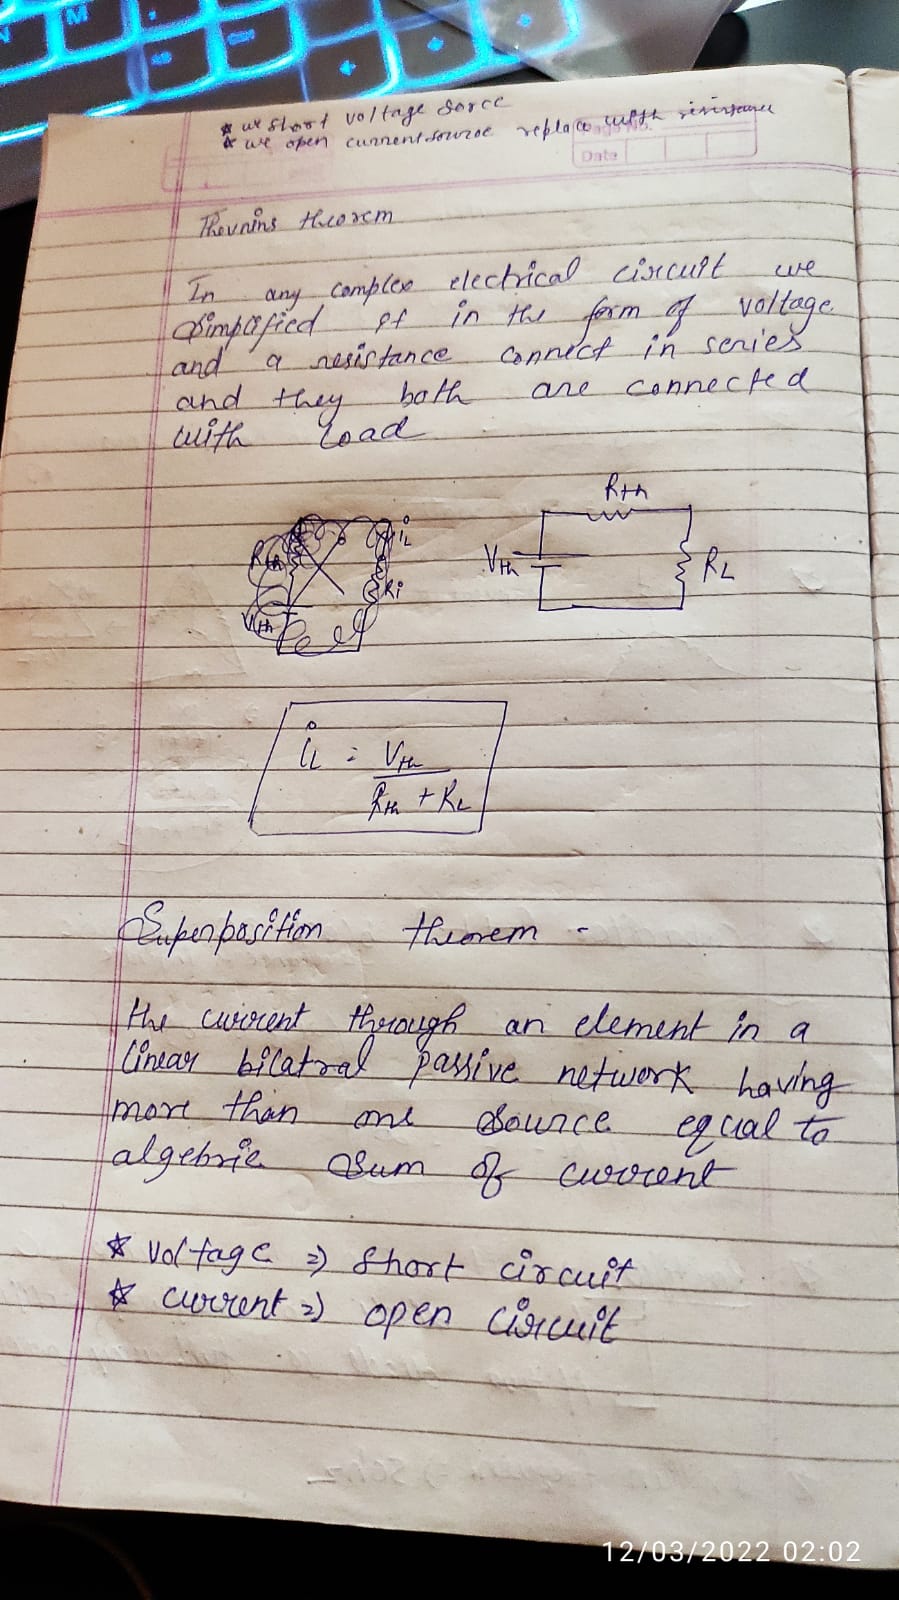 * we short voltage sorce
* we open current source replace with resistance
Page No.
Date
Thevnins theorem
In any complex electrical circuit we
simplified it in the form of voltage
and a resistance connect in series
and they both are connected
with load
Rth
iL
Ri
Vth
Rth
Vth
RL
iL = Vth
Rth + RL
Superposition theorem -
the current through an element in a
linear bilatral passive network having
more than one source equal to
algebric sum of current
* voltage => short circuit
* current => open circuit
12/03/2022 02:02